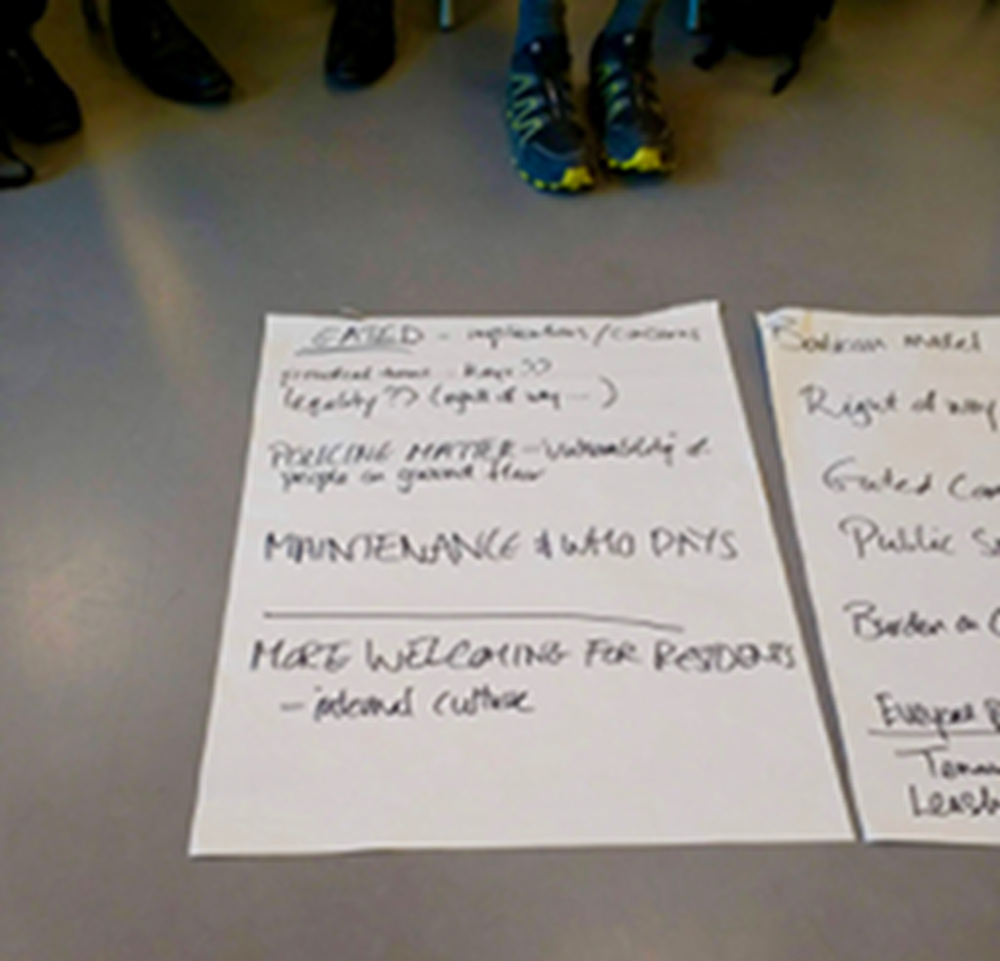 GATED - implications/concerns
practical issues - Keys ??
legality?? (right of way ...)
POLICING MATTER - vulnerability of
people on ground floor
MAINTENANCE & WHO PAYS
MORE WELCOMING FOR RESIDENTS
- internal culture
model
Right of way
Gated
Public
Burden on
Everyone